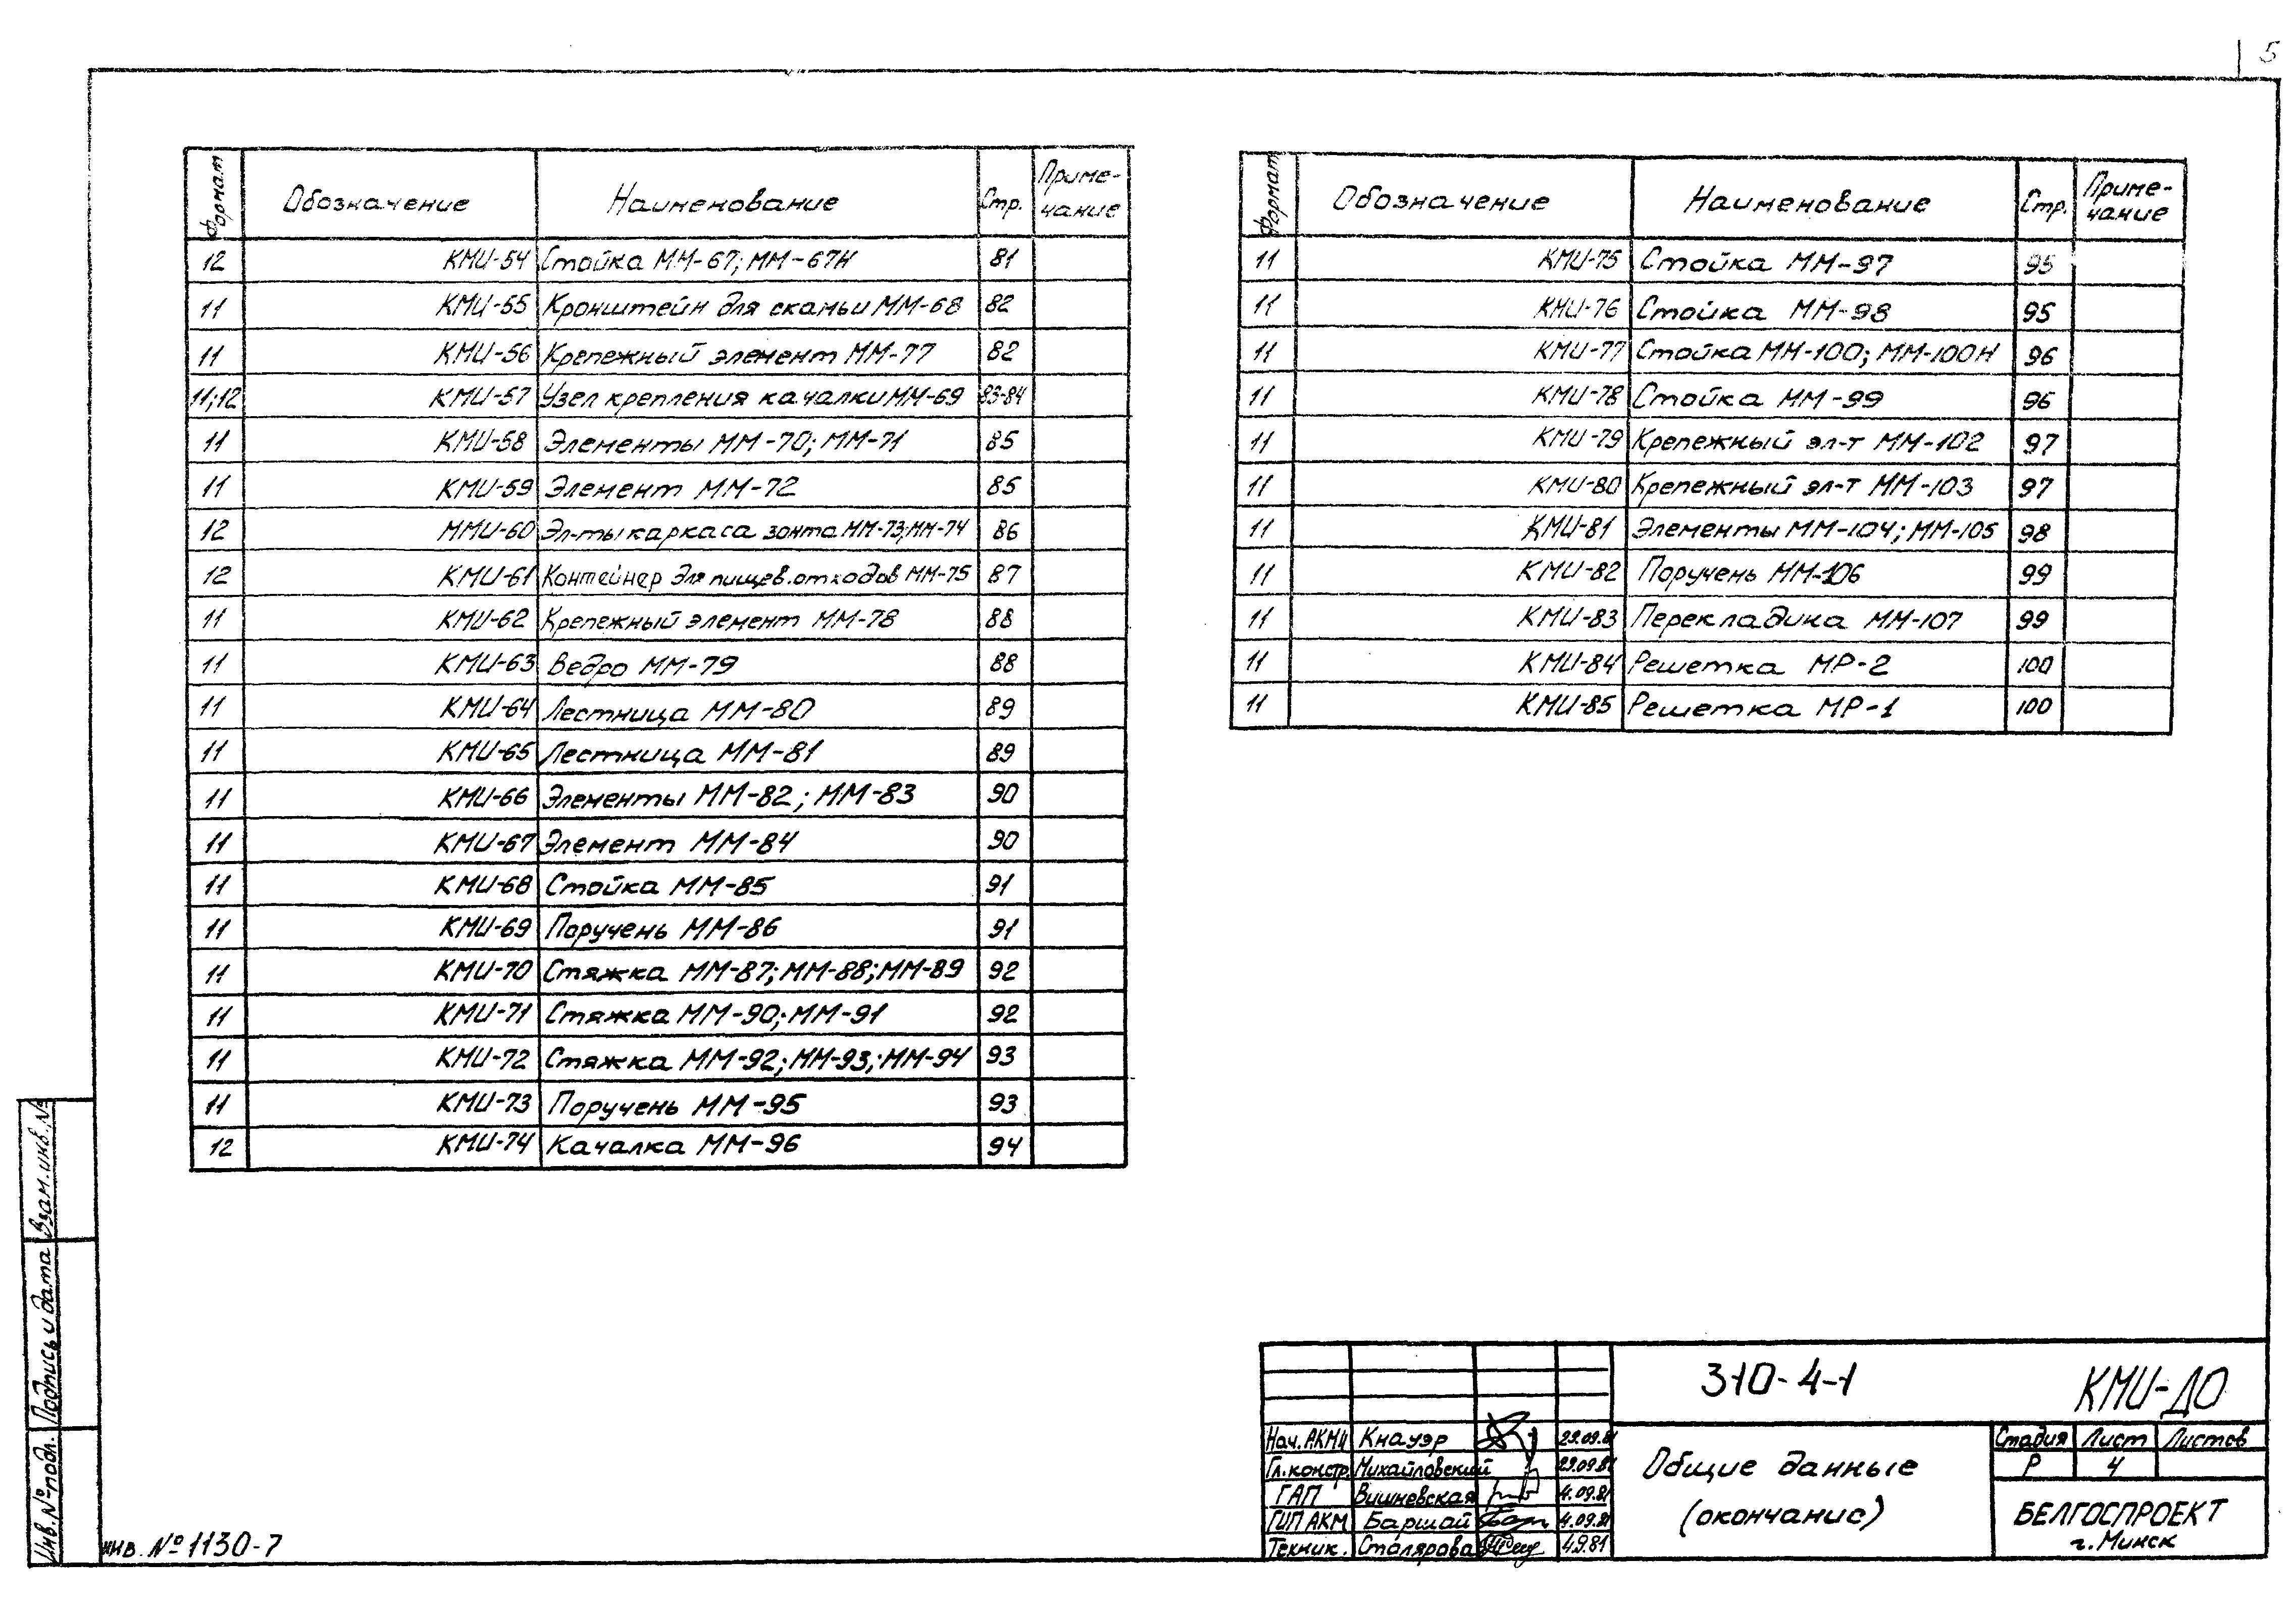 5
Формат Обозначение Наименование Стр. Приме-чание
12 КМИ-54 Стойка ММ-67; ММ-67Н 81
11 КМИ-55 Кронштейн для скамьи ММ-68 82
11 КМИ-56 Крепежный элемент ММ-77 82
11;12 КМИ-57 Узел крепления качалки ММ-69 83-84
11 КМИ-58 Элементы ММ-70; ММ-71 85
11 КМИ-59 Элемент ММ-72 85
12 ММИ-60 Эл-ты каркаса зонта ММ-73; ММ-74 86
12 КМИ-61 Контейнер для пищев. отходов ММ-75 87
11 КМИ-62 Крепежный элемент ММ-78 88
11 КМИ-63 Ведро ММ-79 88
11 КМИ-64 Лестница ММ-80 89
11 КМИ-65 Лестница ММ-81 89
11 КМИ-66 Элементы ММ-82; ММ-83 90
11 КМИ-67 Элемент ММ-84 90
11 КМИ-68 Стойка ММ-85 91
11 КМИ-69 Поручень ММ-86 91
11 КМИ-70 Стяжка ММ-87; ММ-88; ММ-89 92
11 КМИ-71 Стяжка ММ-90; ММ-91 92
11 КМИ-72 Стяжка ММ-92; ММ-93; ММ-94 93
11 КМИ-73 Поручень ММ-95 93
12 КМИ-74 Качалка ММ-96 94
Формат Обозначение Наименование Стр. Приме-чание
11 КМИ-75 Стойка ММ-97 95
11 КМИ-76 Стойка ММ-98 95
11 КМИ-77 Стойка ММ-100; ММ-100Н 96
11 КМИ-78 Стойка ММ-99 96
11 КМИ-79 Крепежный эл-т ММ-102 97
11 КМИ-80 Крепежный эл-т ММ-103 97
11 КМИ-81 Элементы ММ-104; ММ-105 98
11 КМИ-82 Поручень ММ-106 99
11 КМИ-83 Перекладина ММ-107 99
11 КМИ-84 Решетка МР-2 100
11 КМИ-85 Решетка МР-1 100
Взам. инв. №
Подпись и дата
Инв. № подл.
инв. № 1130-7
310-4-1 КМИ-ДО
Нач. АКМИ Кнауэр 29.09.81
Гл. констр. Михайловский 29.09.81
ГАП Вишневская 4.09.81
ГИП АКМ Баршай 4.09.81
Техник. Столярова 4.9.81
Общие данные
(окончание)
Стадия Лист Листов
Р 4
БЕЛГОСПРОЕКТ
г. Минск